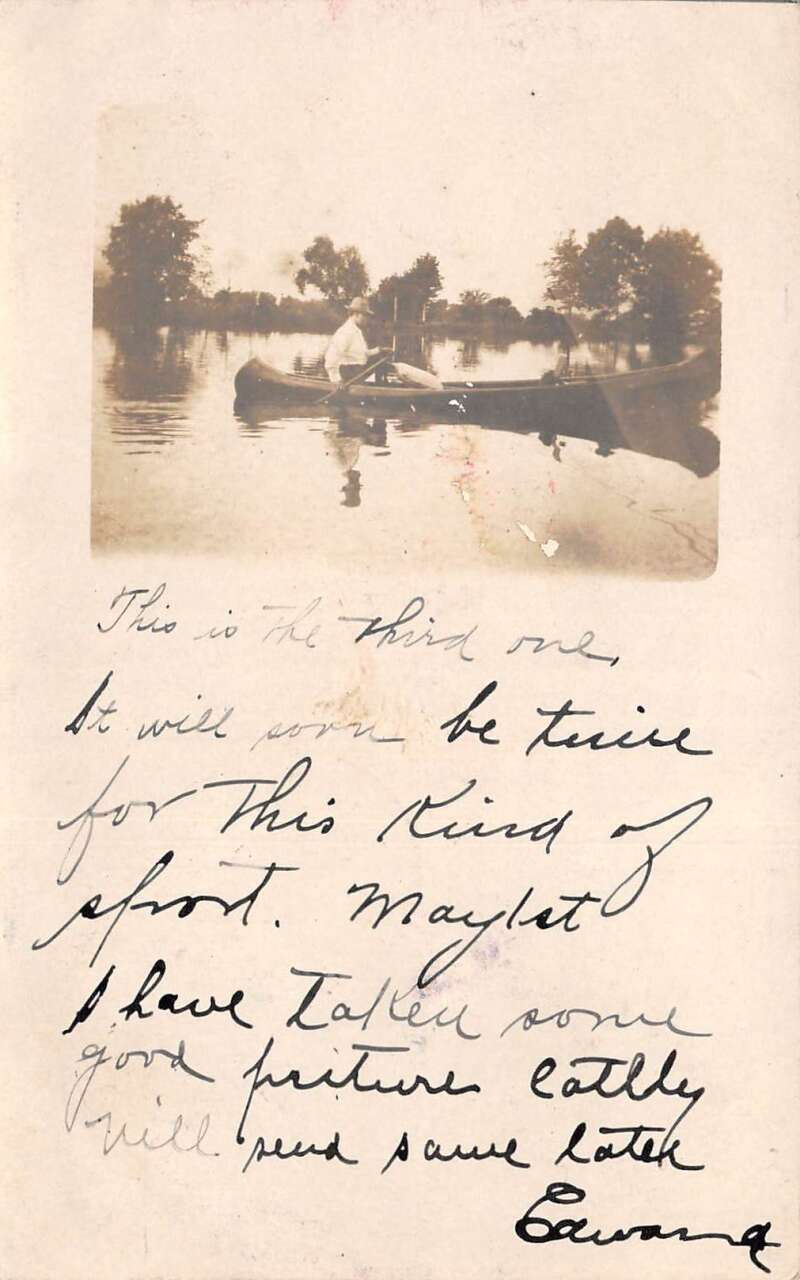 This is the third one,
It will soon be time
for this kind of
sport. May 1st
I have taken some
good pictures latley
will send same later
Edward